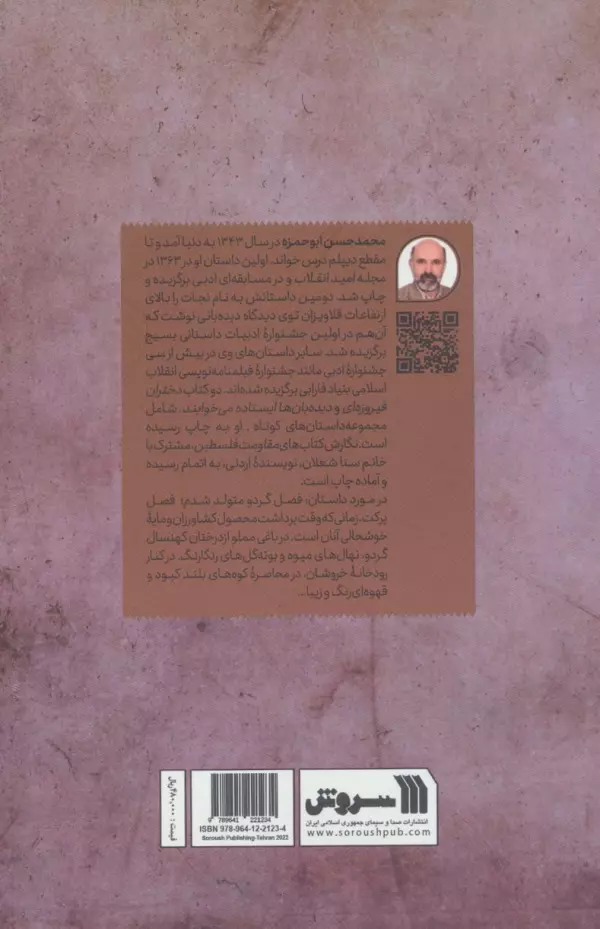 محمدحسن ابوحمزه در سال ۱۳۴۳ به دنیا آمد و تا
مقطع دیپلم درس خواند. اولین داستان او در ۱۳۶۳ در
مجله امید انقلاب و در مسابقه‌ای ادبی برگزیده و
چاپ شد. دومین داستانش به نام نجات را بالای
ارتفاعات قلاویزان توی دیدگاه دیده‌بانی نوشت که
آن‌هم در اولین جشنوارهٔ ادبیات داستانی بسیج
برگزیده شد. سایر داستان‌های وی در بیش از سی
جشنوارهٔ ادبی مانند جشنوارهٔ فیلمنامه‌نویسی انقلاب
اسلامی بنیاد فارابی برگزیده شده‌اند. دو کتاب دختران
فیروزه‌ای و دیده‌بان‌ها ایستاده می‌خوابند، شامل
مجموعه‌داستان‌های کوتاه ، او به چاپ رسیده
است. نگارش کتاب‌های مقاومت فلسطین، مشترک با
خانم سنا شعلان، نویسندهٔ اردنی، به اتمام رسیده
و آماده چاپ است.
در مورد داستان، فصل گردو متولد شدم؛ فصل
برکت، زمانی که وقت برداشت محصول کشاورزان و مایهٔ
خوشحالی آنان است. در باغی مملو از درختان کهنسال
گردو، نهال‌های میوه و بوته‌گل‌های رنگارنگ. در کنار
رودخانهٔ خروشان، در محاصرهٔ کوه‌های بلند کبود و
قهوه‌ای‌رنگ و زیبا...
سروش
انتشارات صدا و سیمای جمهوری اسلامی ایران
www.soroushpub.com
9 789641 221234
ISBN 978-964-12-2123-4
Soroush Publishing-Tehran 2022
قیمت: ۴۸۰,۰۰۰ ریال